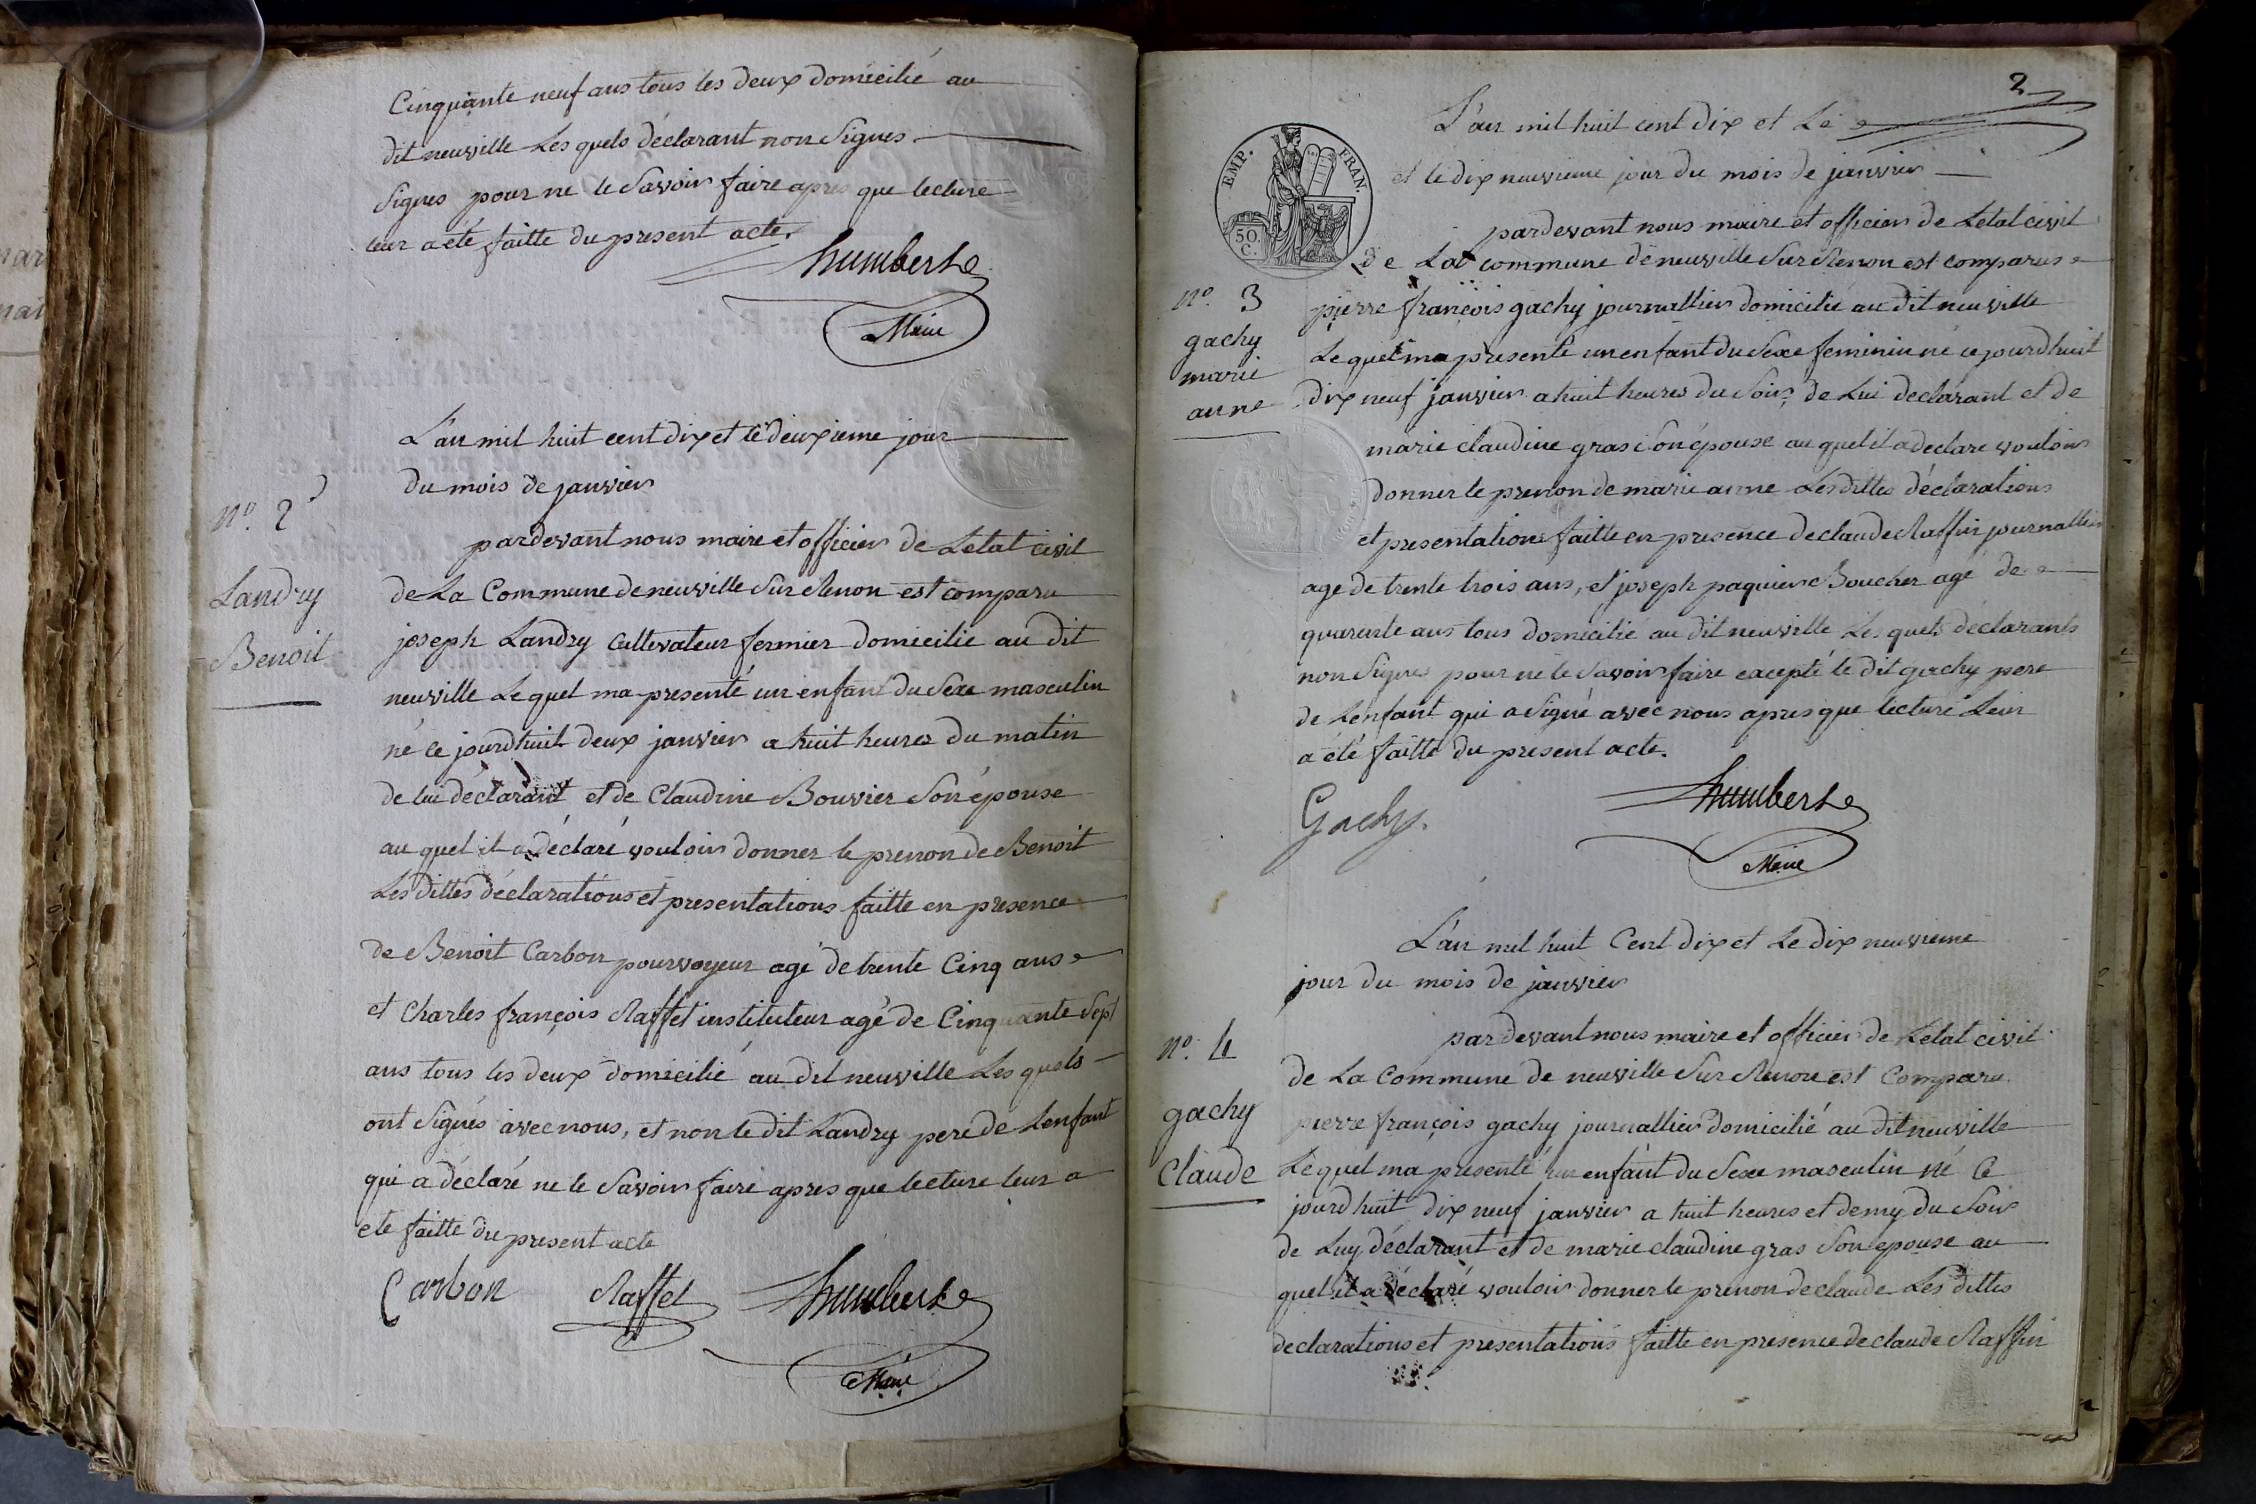 Cinquante neuf ans tous les deux domicilié au
dit neuville Les quels déclarant non Signes
Signes pour ne le Savoir faire apres que lecture
leur a eté faitte du present acte.
humbert
Maire
L'an mil huit cent dix et le deuxieme jour
du mois de janvier
No. 2
Landry
Benoit
pardevant nous maire et officier de Letat civil
de La Commune de neuville Sur Renon est comparu
joseph Landry Cultivateur fermier domicilie au dit
neuville Le quel ma presenté un enfant du Sexe masculin
né ce jourdhuit deux janvier a huit heures du matin
de lui déclarant et de Claudine Bouvier Son épouse
au quel il a déclaré vouloir donner le prenon de Benoit
Les dittes déclarations et presentations faitte en presence
de Benoit Carbon pourvoyeur agé de trente Cinq ans
et Charles françois Raffet instituteur agé de Cinquante Sept
ans tous les deux domicilié au dit neuville Les quels
ont Signés avec nous, et non le dit Landry pere de Lenfant
qui a déclaré ne le Savoir faire apres que lecture leur a
ete faitte du present acte
Carbon Raffet humbert
Maire
2
L'an mil huit cent dix et Le
et le dix neuvieme jour du mois de janvier
EMP. FRAN.
50. C.
pardevant nous maire et officier de Letat civil
de La commune de neuville Sur Renon est comparus
No. 3
gachy
marie
anne
pierre françois gachy journallier domicilié au dit neuville
Le quel ma presenté un enfant du Sexe feminin né ce jourdhuit
dix neuf janvier a huit heures du Soir, de Lui declarant et de
marie claudine gras Son épouse au quel il a declare vouloir
donner le prenon de marie anne Les dittes déclarations
et presentations faitte en presence de claude Raffin journallier
age de trente trois ans, et joseph paquier Boucher agé de
quarante ans tous domicilié au dit neuville Les quels déclarants
non Signes pour ne le Savoir faire excepté le dit gachy pere
de Lenfant qui a Signé avec nous apres que lecture Leur
a été faitte du present acte.
Gachy. humbert
Maire
L'an mil huit Cent dix et Le dix neuvieme
jour du mois de janvier
No. 4
gachy
Claude
pardevant nous maire et officier de Letat civil
de La Commune de neuville Sur Renon est Comparu
pierre françois gachy journallier domicilié au dit neuville
Le quel ma presenté un enfant du Sexe masculin né Ce
jourdhuit dix neuf janvier a huit heures et demy du Soir
de Luy déclarant et de marie claudine gras Son epouse au
quel il a déclaré vouloir donner le prenon de claude Les dittes
declarations et presentations faitte en presence de claude Raffin